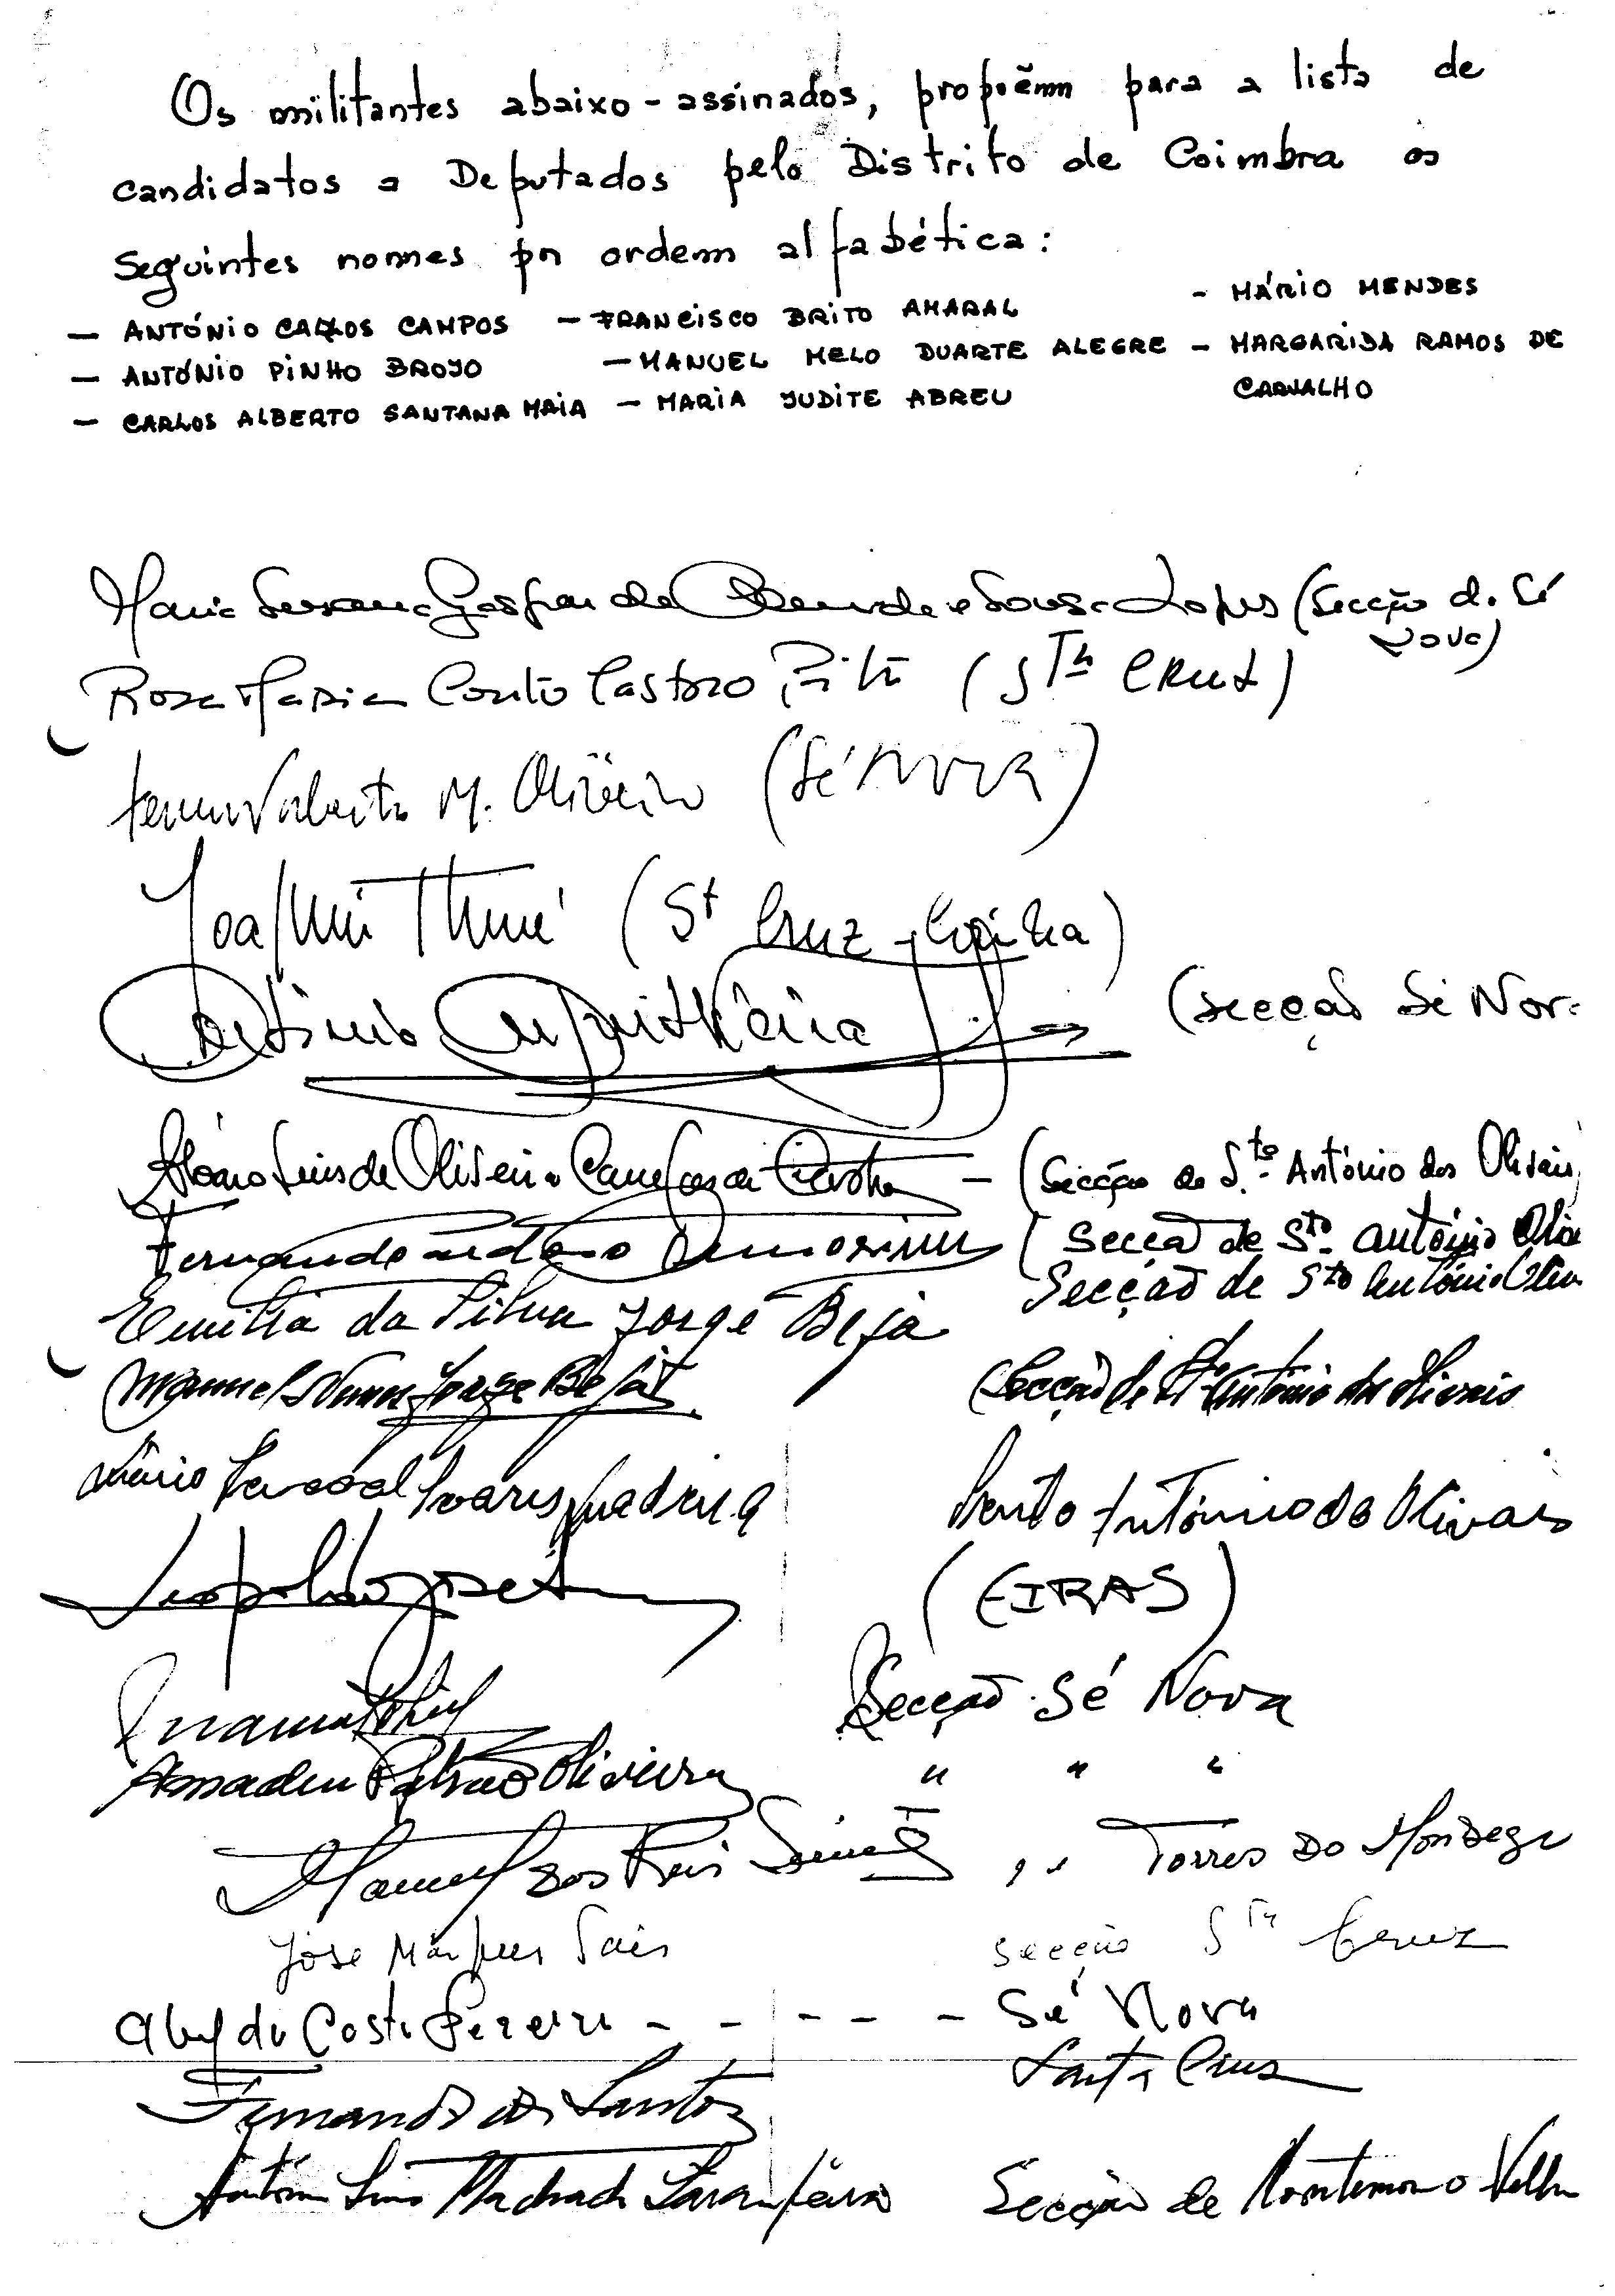 Os militantes abaixo-assinados, propoẽm para a lista de
candidatos a Deputados pelo Distrito de Coimbra os
seguintes nomes por ordem alfabética:
— ANTÓNIO CARLOS CAMPOS
— ANTÓNIO PINHO BROJO
— CARLOS ALBERTO SANTANA MAIA
— FRANCISCO BRITO AMARAL
— MANUEL MELO DUARTE ALEGRE
— MARIA JUDITE ABREU
- MÁRIO MENDES
- MARGARIDA RAMOS DE
CARVALHO
Maria Gaspar de Sousa Lopes (Secção d. Sé
Nova)
Rosa Maria Couto Castoro (STª CRUZ)
M. Oliveira (Sé NOVA)
Joaquim (St Cruz)
António (secção Sé Nov.
Luis de Oliveira Castro — (Secção de S.to António dos Olivais)
Fernando Amorim (Secçaõ de Sto. António Oliv
Emilia da Silva Jorge Beja Secção de Sto António Oliv
Manuel Nunes Jorge Beja (Secção de Stº António dos Olivais
Mário Soares Santo António do Olivais
Leopoldo (EIRAS)
Secção Sé Nova
Amadeu Oliveira " " "
Manuel dos Reis Torres Do Mondego
José Marques Secção STª Cruz
Abel da Costa Pereira - - - - - Sé Nova
Fernando dos Santos Santa Cruz
António Lino Machado Secção de Montemor o Velho